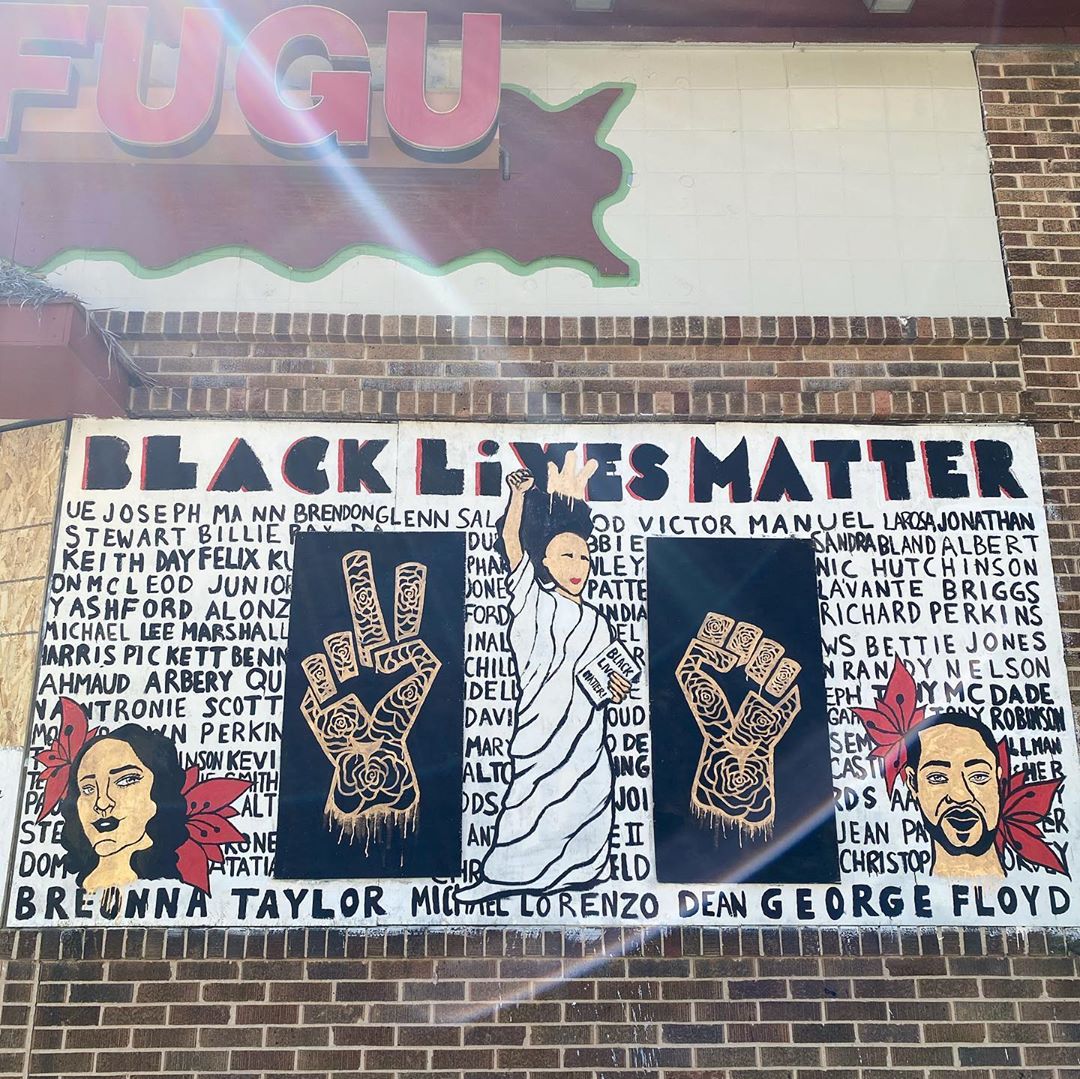 FUGU
BLACK LiVES MATTER
UE JOSEPH MANN BRENDON GLENN SAL OD VICTOR MANUEL LAROSA JONATHAN
STEWART BILLIE RAY DA DU BBIE SANDRA BLAND ALBERT
KEITH DAY FELIX KU PHAR NLEY NIC HUTCHINSON
ON MCLEOD JUNIOR JONES PATTE LAVANTE BRIGGS
Y ASHFORD ALONZ FORD INDIA RICHARD PERKINS
MICHAEL LEE MARSHALL INAL DEL WS BETTIE JONES
HARRIS PICKETT BENN CHILD R N RANDY NELSON
BLACK
LIVES
MATTER!
AHMAUD ARBERY QU DELL EPH TONY MCDADE
NA ANTRONIE SCOTT DAVI OUD GAR TONY ROBINSON
MO WN PERKIN MARY O DE SEM LLMAN
INSON KEVI ALTO NG CASTI HER
SMITH ODS JOI RDS AA
ALT AN E II JEAN PA ER
STE RONE CHR ELD CHRISTOP
DOM ATATIA
BREONNA TAYLOR MICHAEL LORENZO DEAN GEORGE FLOYD